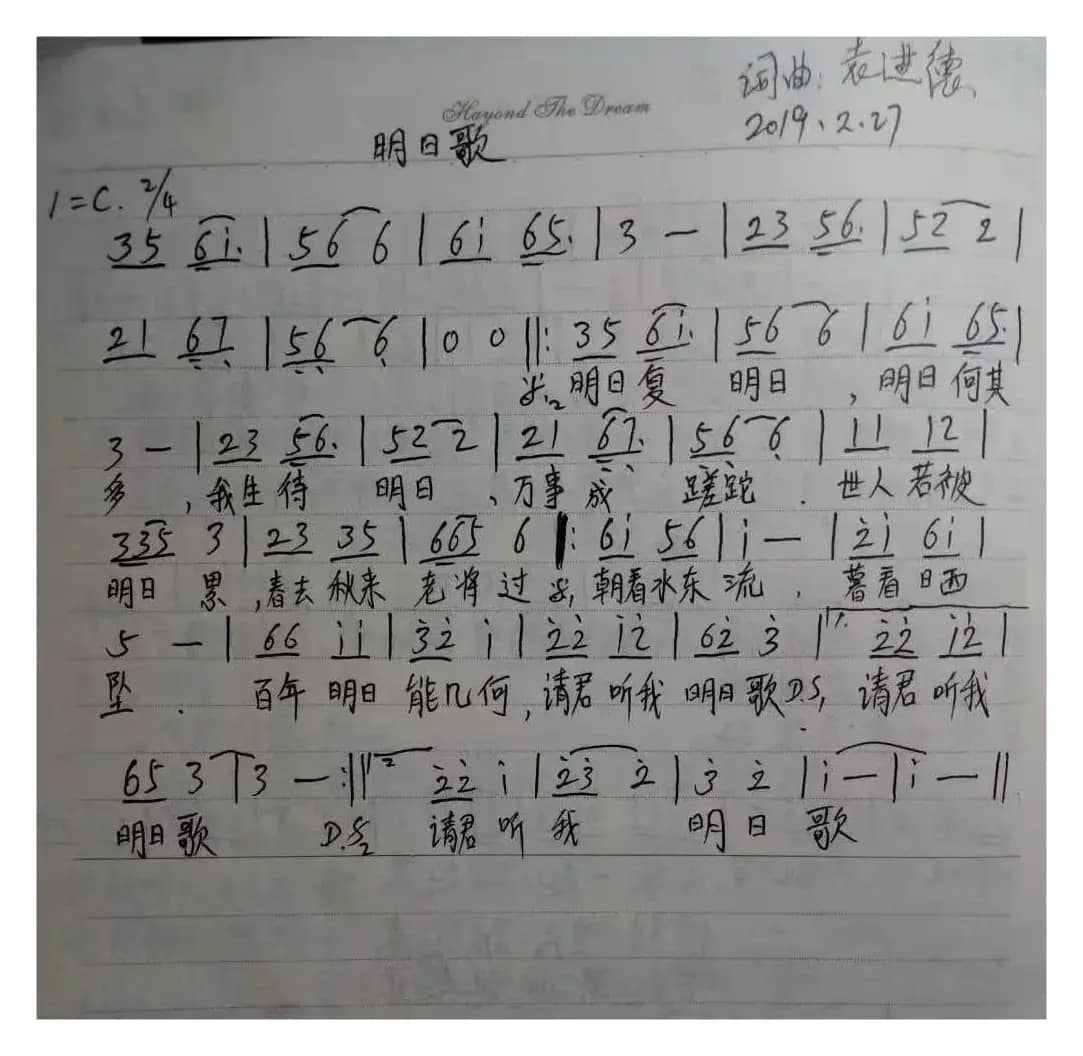 词曲：袁进德
Hayond The Dream
2019.2.27
明日歌
1=C. 2/4
35 6i. | 56 6 | 6i 65. | 3 — | 23 56. | 52 2 |
21 67 | 56 6 | 0 0 ||: 35 6i. | 56 6 | 6i 65. |
明日复 明日 ，明日何其
3 — | 23 56. | 52 2 | 21 67. | 56 6 | 11 12 |
多 ，我生待 明日 、万事成 蹉跎 . 世人若被
335 3 | 23 35 | 665 6 |: 6i 56 | i — | 2i 6i |
明日 累 ,春去秋来 老将过 朝看水东流 . 暮看日西
5 — | 66 ii | 32 i | 22 i2 | 62 3 | 1. 22 i2 |
坠 . 百年明日能几何,请君听我明日歌D.S, 请君听我
65 3 | 3 — :|| 2 22 i | 23 2 | 3 2 | i — | i — ||
明日歌 D.S2 请君听我 明日歌